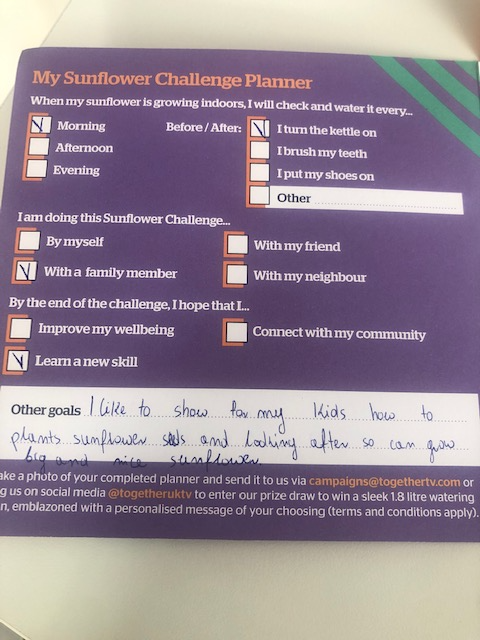 My Sunflower Challenge Planner
When my sunflower is growing indoors, I will check and water it every...
Morning Before / After: I turn the kettle on
Afternoon I brush my teeth
Evening I put my shoes on
Other
I am doing this Sunflower Challenge...
By myself With my friend
With a family member With my neighbour
By the end of the challenge, I hope that I...
Improve my wellbeing Connect with my community
Learn a new skill
Other goals I like to show for my kids how to
plants sunflower and looking after so can grow
big and nice sunflower.
ake a photo of your completed planner and send it to us via campaigns@togethertv.com or
g us on social media @togetheruktv to enter our prize draw to win a sleek 1.8 litre watering
n, emblazoned with a personalised message of your choosing (terms and conditions apply).